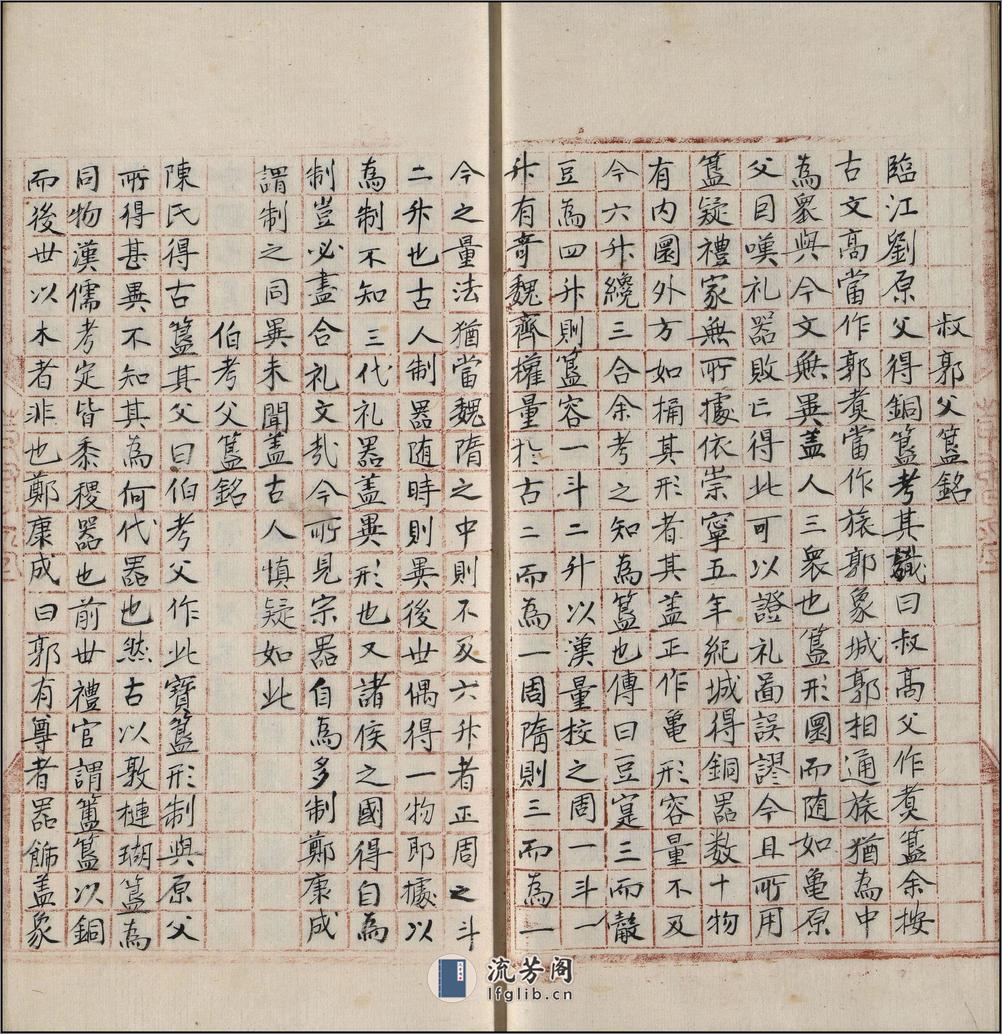 叔郭父簋銘
臨江劉原父得銅簋考其識曰叔高父作煑簋余按
古文高當作郭煑當作旅郭象城郭相通旅猶為中
為衆與今文無異蓋人三衆也簋形圜而随如龜原
父目嘆礼器敗亡得此可以證礼啚誤謬今且所用
簋疑禮家無所據依崇寧五年紀城得銅器数十物
有内圜外方如桶其形者其蓋正作龜形容量不及
今六升纔三合余考之知為簋也傳曰豆寔三而觳
豆為四升則簋容一斗二升以漢量校之周一斗一
升有竒魏齊權量於古二而為一周隋則三而為一
今之量法猶當魏隋之中則不及六升者正周之斗
二升也古人制器随時則異後世偶得一物即據以
為制不知三代礼器蓋異形也又諸侯之國得自為
制豈必盡合礼文㢤今所見宗器自為多制鄭康成
謂制之同異未聞蓋古人慎疑如此
伯考父簋銘
陳氏得古簋其父曰伯考父作此寶簋形制與原父
所得甚異不知其為何代器也然古以敦槤瑚簋為
同物漢儒考定皆黍稷器也前世禮官謂簠簋以銅
而後世以木者非也鄭康成曰郭有尊者器飾蓋象
流芳阁
lfglib.cn